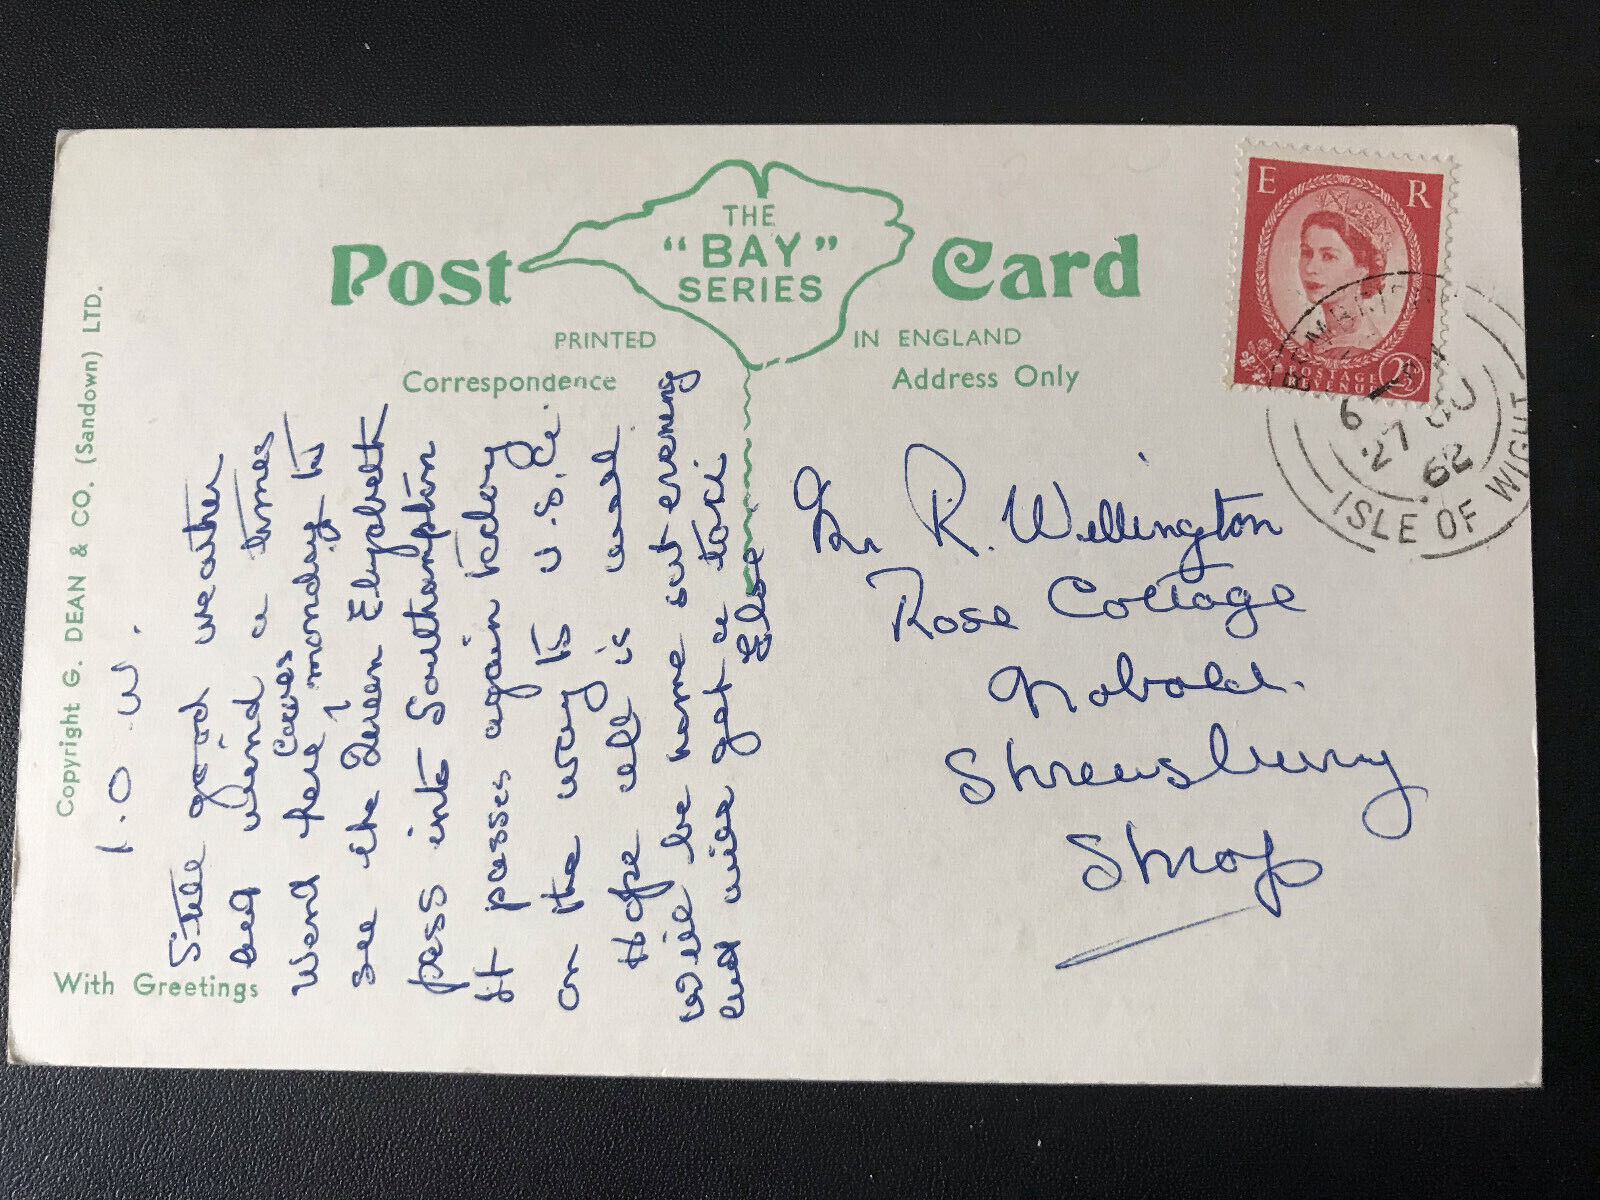 Post Card
THE
"BAY"
SERIES
PRINTED IN ENGLAND
Correspondence
Address Only
Copyright G. DEAN & CO. (Sandown) LTD.
With Greetings
I.O.W.
Still good weather
but wind a times
Went here monday to
see the Queen Elizabeth
pass into Southampton
It passes again today
on the way to U.S.
Hope all is well
Will be home sat evening
and will get a taxi
Elsie
R. Wellington
Rose Cottage
Nobold.
Shrewsbury
Shrop
E R
POSTAGE
REVENUE
2½
BEMBRIDGE
6 PM
27 JU
62
ISLE OF WIGHT